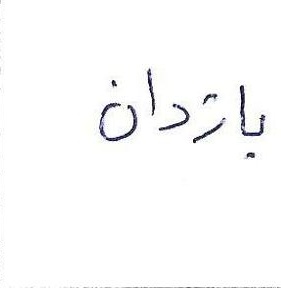 باژدان